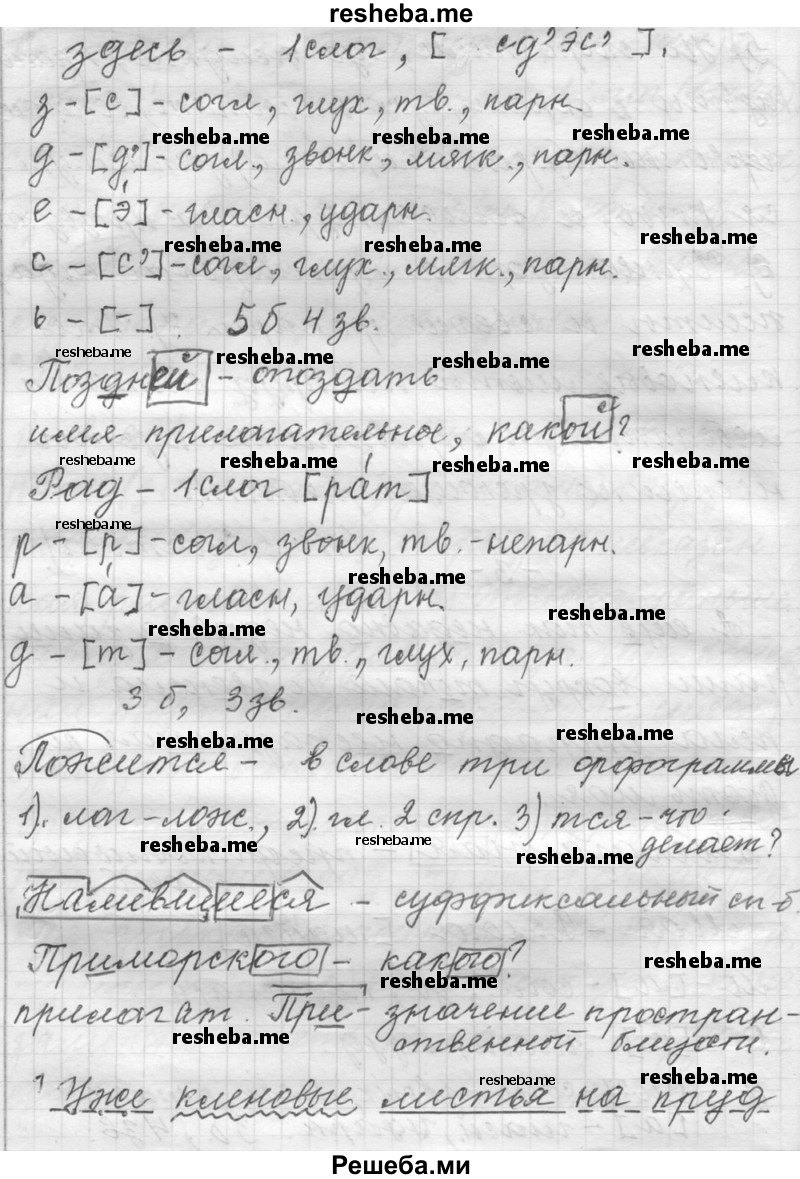 resheba.me
здесь - 1 слог, [ сд’эс’ ].
з - [с] - согл, глух, тв., парн.
resheba.me resheba.me resheba.me
д - [д’] - согл., звонк, мягк., парн.
е - [э́] - гласн., ударн.
resheba.me resheba.me resheba.me
с - [с’] - согл, глух., мягк., парн.
ь - [-] 5 б 4 зв.
resheba.me resheba.me resheba.me resheba.me
Поздней - опоздать
имя прилагательное, какой?
resheba.me resheba.me resheba.me resheba.me
Рад - 1 слог [ра́т]
resheba.me
р - [р] - согл, звонк, тв. - непарн.
resheba.me
а - [а́] - гласн, ударн.
resheba.me resheba.me
д - [т] - согл., тв., глух, парн.
3 б, 3 зв.
resheba.me resheba.me resheba.me
Ложится - в слове три орфограммы
1). лаг - лож., 2). гл. 2 спр. 3) тся - что
делает?
resheba.me resheba.me resheba.me
Намывшиеся - суффиксальный сп-б
Приморского - какого?
resheba.me resheba.me
прилагат. При - значение простран-
ственной близости.
resheba.me
resheba.me resheba.me
1 Уже кленовые листья на пруд
Решеба.ми